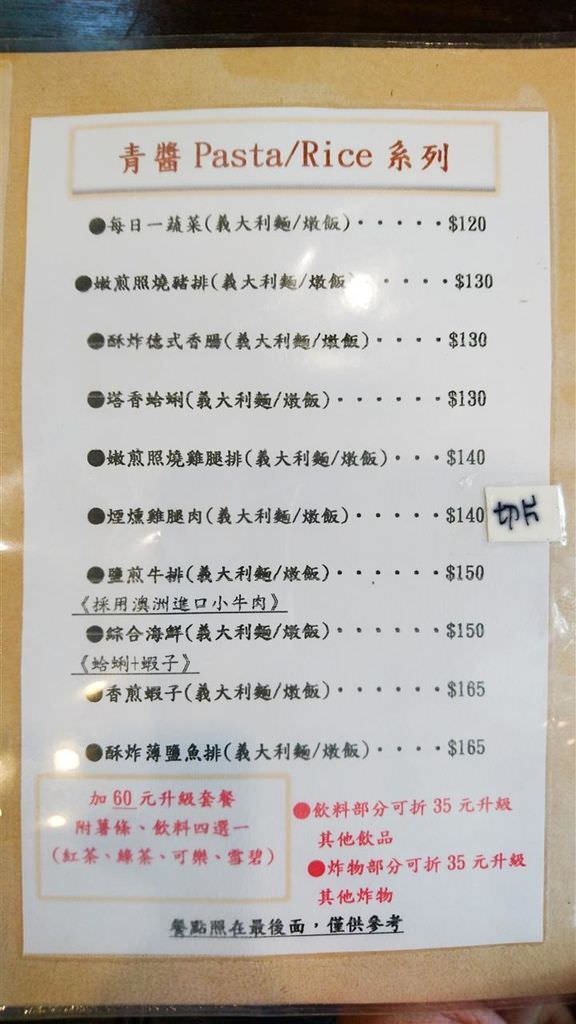 青醬 Pasta/Rice 系列
●每日一蔬菜(義大利麵/燉飯)·····$120
●嫩煎照燒豬排(義大利麵/燉飯)·····$130
●酥炸德式香腸(義大利麵/燉飯)····$130
●塔香蛤蜊(義大利麵/燉飯)······$130
●嫩煎照燒雞腿排(義大利麵/燉飯)···$140
●煙燻雞腿肉(義大利麵/燉飯)·····$140
切片
●鹽煎牛排(義大利麵/燉飯)······$150
《採用澳洲進口小牛肉》
●綜合海鮮(義大利麵/燉飯)······$150
《蛤蜊+蝦子》
●香煎蝦子(義大利麵/燉飯)······$165
●酥炸薄鹽魚排(義大利麵/燉飯)····$165
加 60 元升級套餐
附薯條、飲料四選一
(紅茶、綠茶、可樂、雪碧)
●飲料部分可折 35 元升級
其他飲品
●炸物部分可折 35 元升級
其他炸物
餐點照在最後面，僅供參考